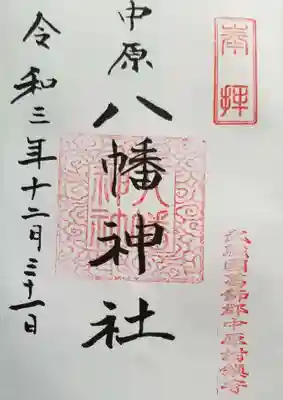 奉拝
國葛飾郡中原村鎮守
中原
八幡神社
令和三年十二月三十一日